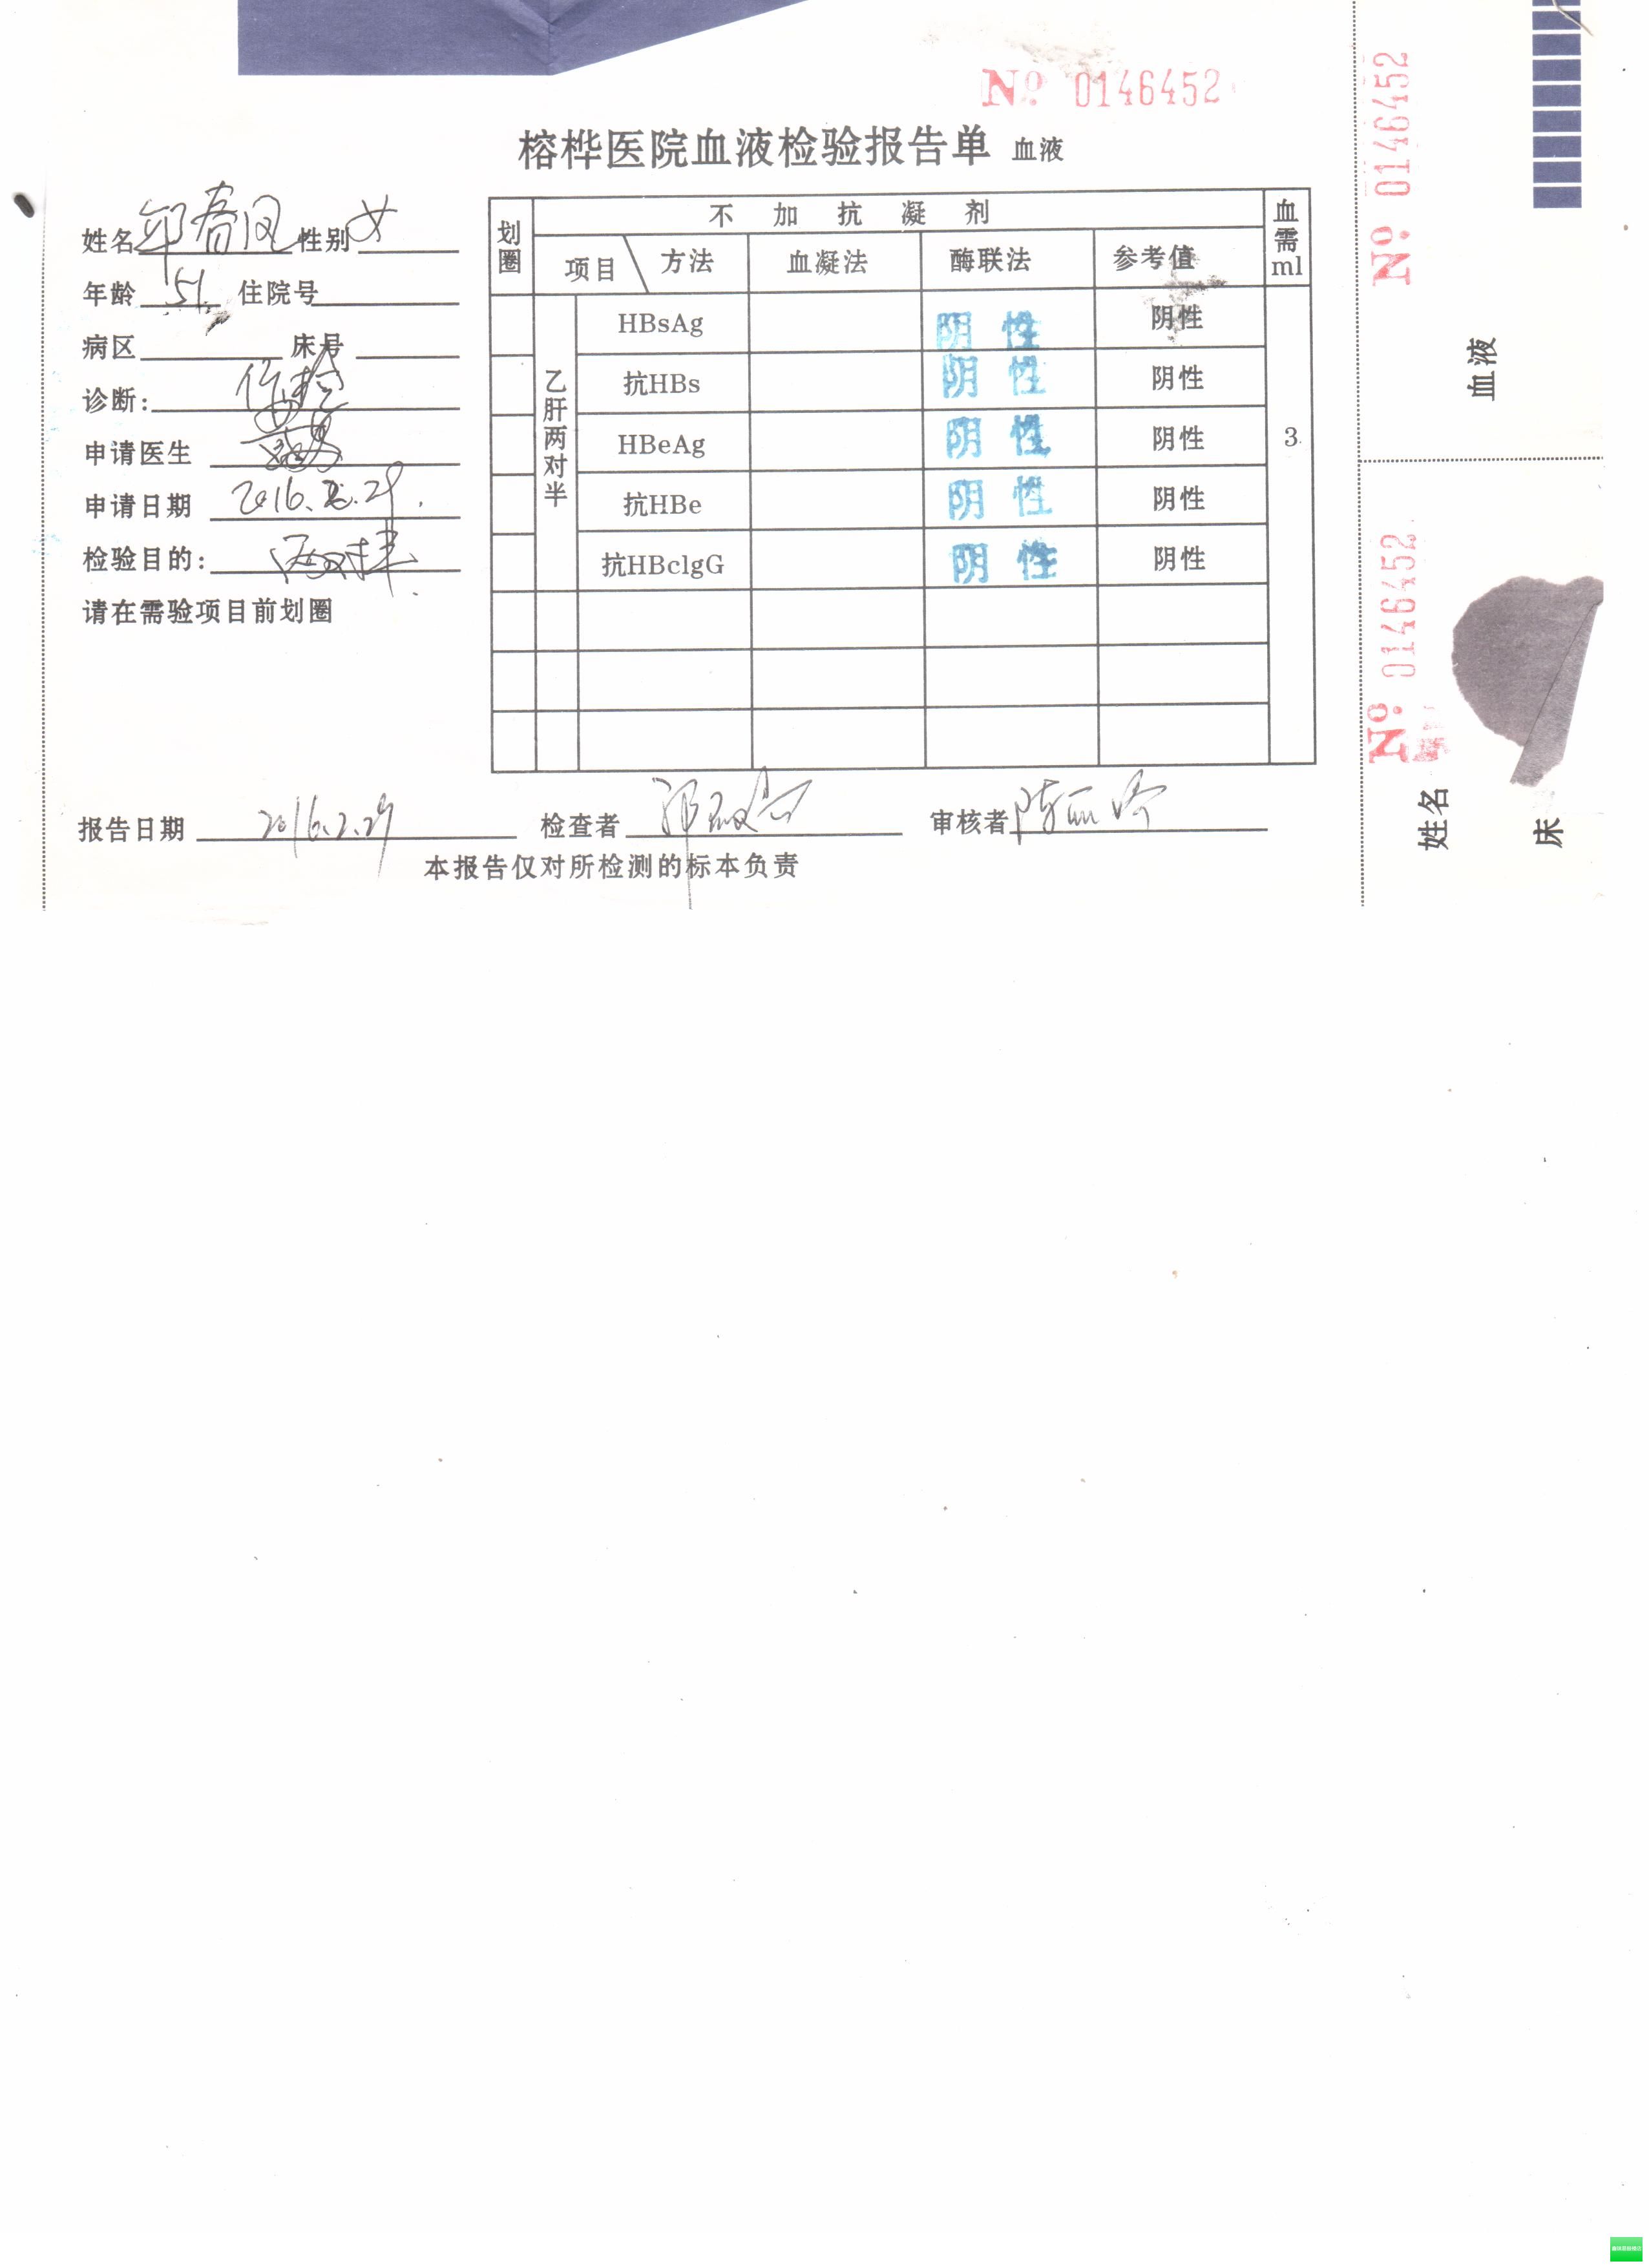 № 0146452
榕桦医院血液检验报告单 血液
姓名 邱春凤 性别 女
年龄 51. 住院号
病区 床号
诊断:
申请医生
申请日期 2016.2.29.
检验目的: 两对半
请在需验项目前划圈
划圈 不加抗凝剂 血需ml
项目 方法 血凝法 酶联法 参考值
乙肝两对半
HBsAg 阴性 阴性
抗HBs 阴性 阴性
HBeAg 阴性 阴性 3
抗HBe 阴性 阴性
抗HBclgG 阴性 阴性
报告日期 2016.2.29 检查者 审核者
本报告仅对所检测的标本负责
№ 0146452
血液
№ 0146452
姓名
床